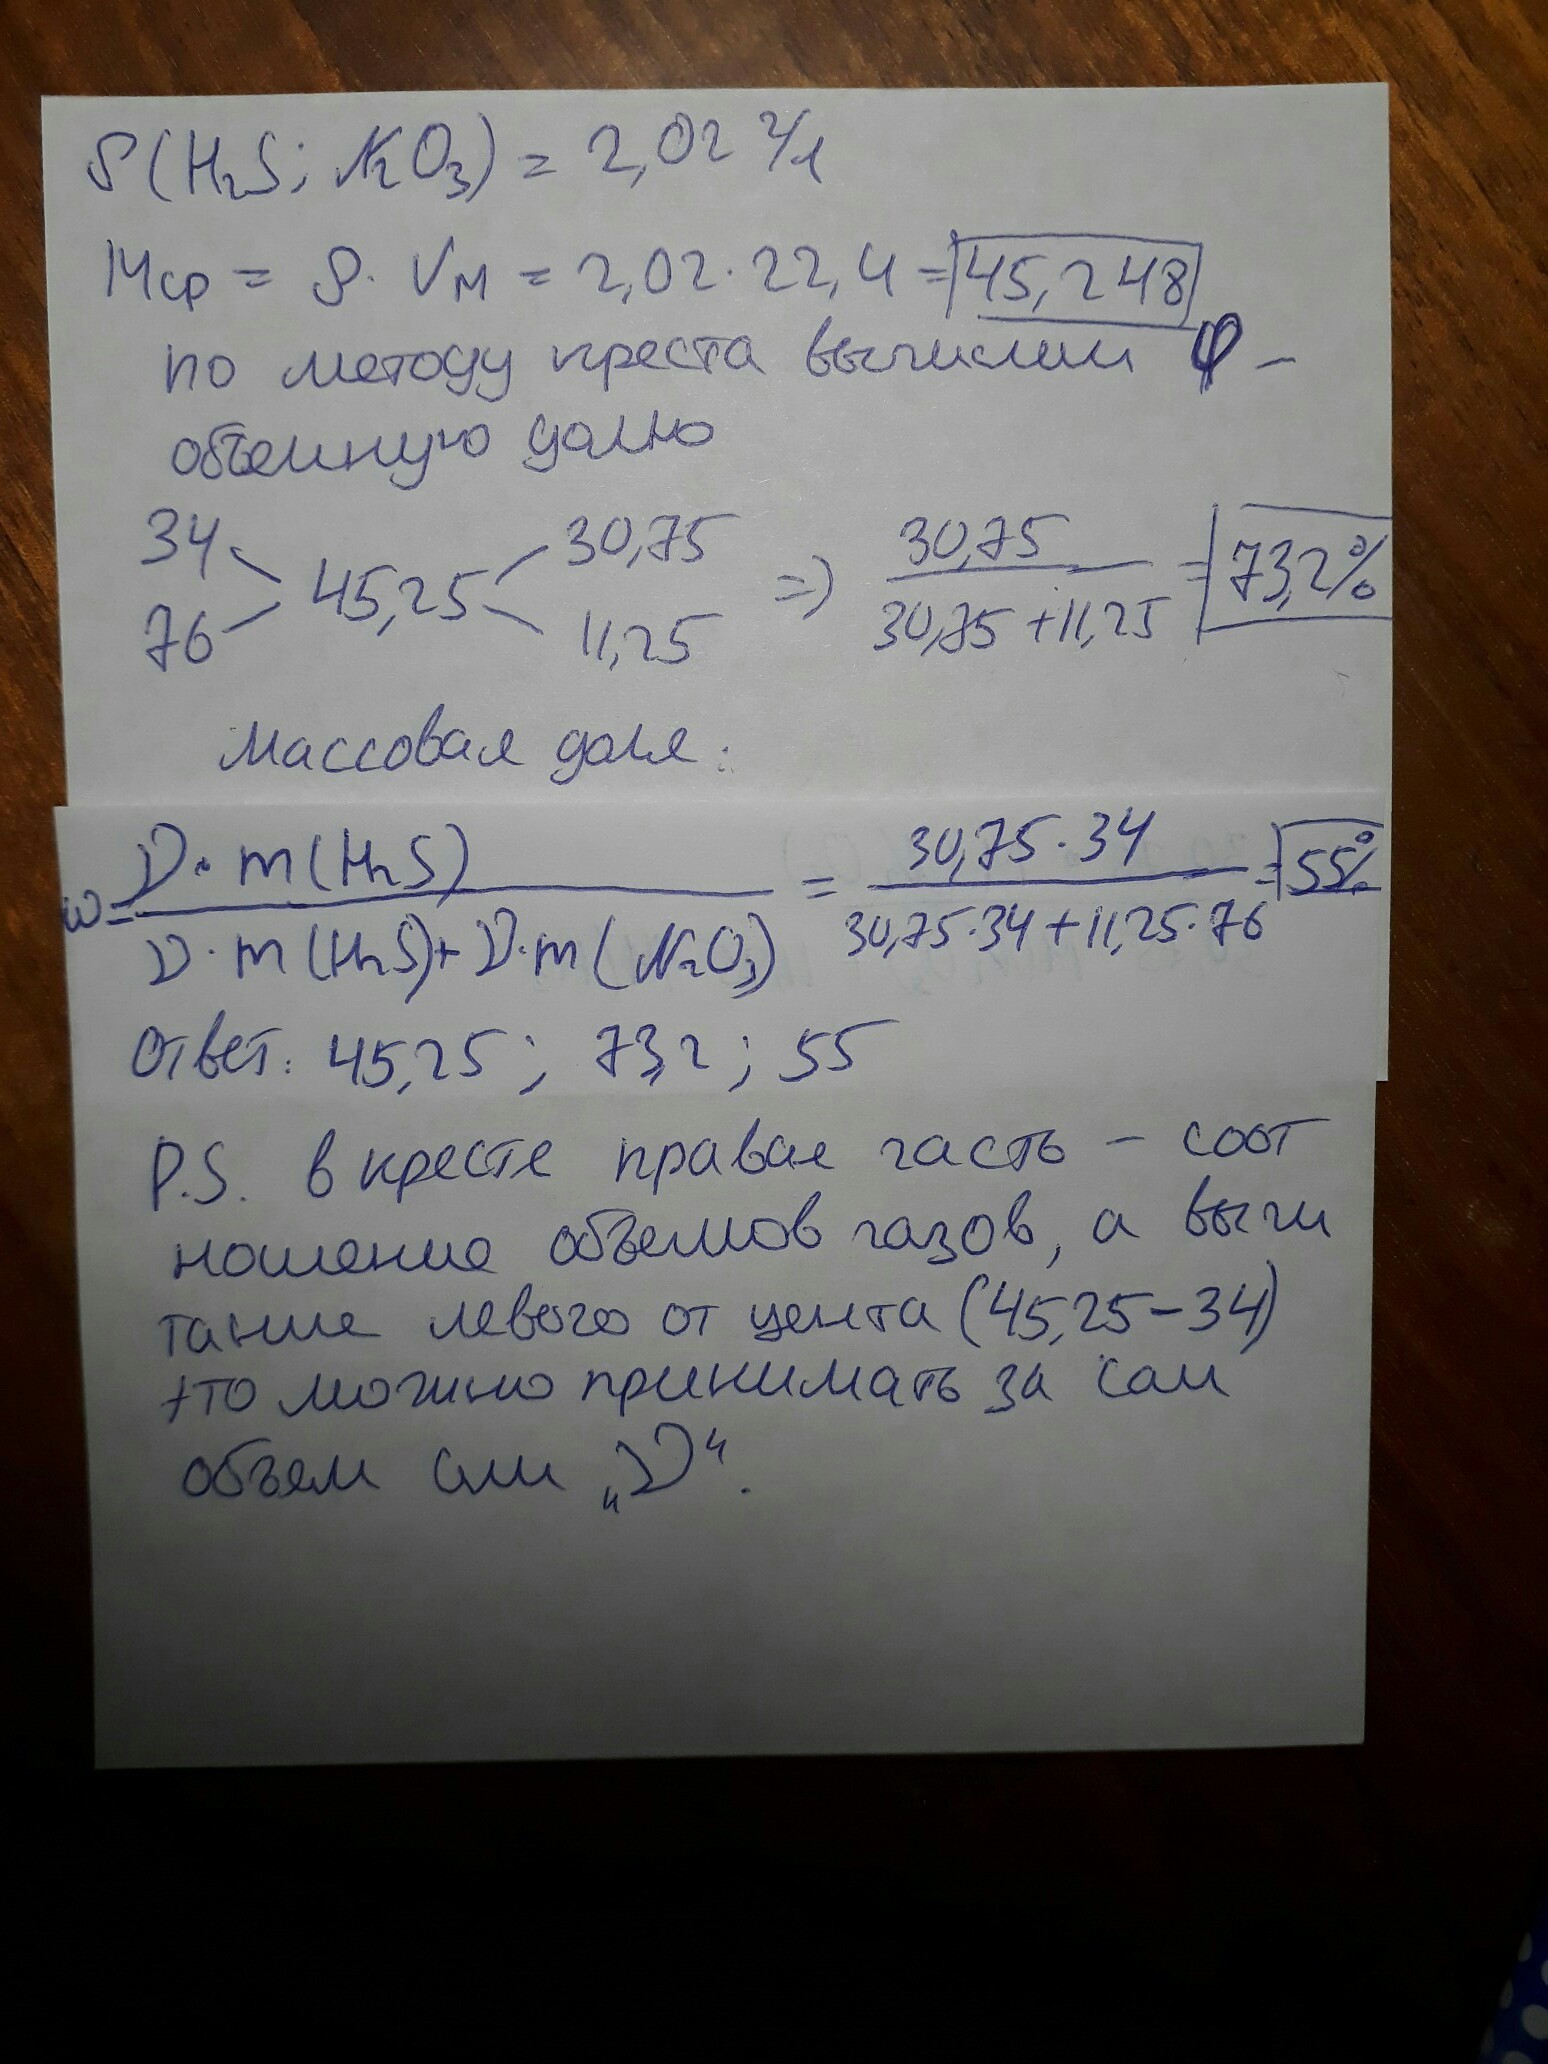 ρ(H₂S; N₂O₃) = 2,02 г/л
Mср = ρ · Vм = 2,02 · 22,4 = 45,248
по методу креста вычислим φ –
объемную долю
34 30,75 30,75
45,25 => = 73,2%
76 11,25 30,75 + 11,25
массовая доля:
ν · m(H₂S) 30,75 · 34
ω = = = 55%
ν · m(H₂S) + ν · m(N₂O₃) 30,75 · 34 + 11,25 · 76
Ответ: 45,25 ; 73,2 ; 55
P.S. в кресте правая часть – соот
ношение объемов газов, а вычи
тание левого от цента (45,25 – 34)
то можно принимать за сам
объем или „ν“.